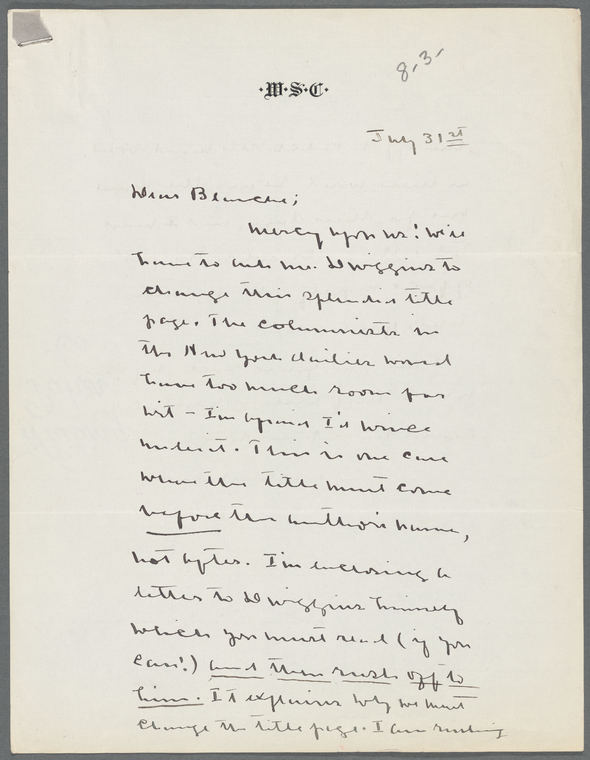 8-3-
·W·S·C·
July 31st
Dear Blanche;
Mercy upon us! We'll
have to ask Mr. Dwiggins to
change this splendid title
page. The columnists in
the New York dailies would
have too much room for
wit - I'm afraid I'd wince
under it. This is one case
when the title must come
before the author's name,
not after. I'm enclosing a
letter to Dwiggins himself
which you must read (if you
can!) and then rush off to
him. It explains why we must
change the title page. I am rushing